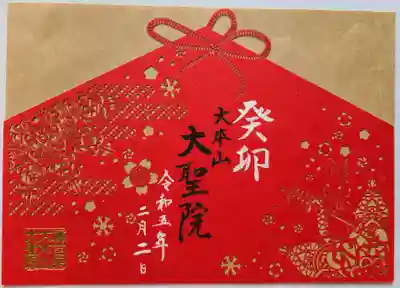 癸卯
大本山
大聖院
令和五年
二月二日